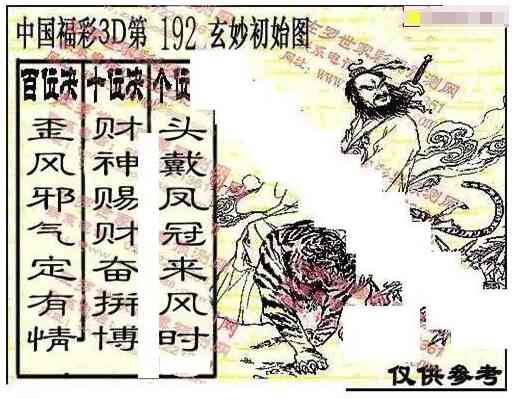 中国福彩3D第 192 玄妙初始图
百位决
歪风邪气定有情
十位决
财神赐财奋拼博
个位
头戴凤冠来风时
仅供参考